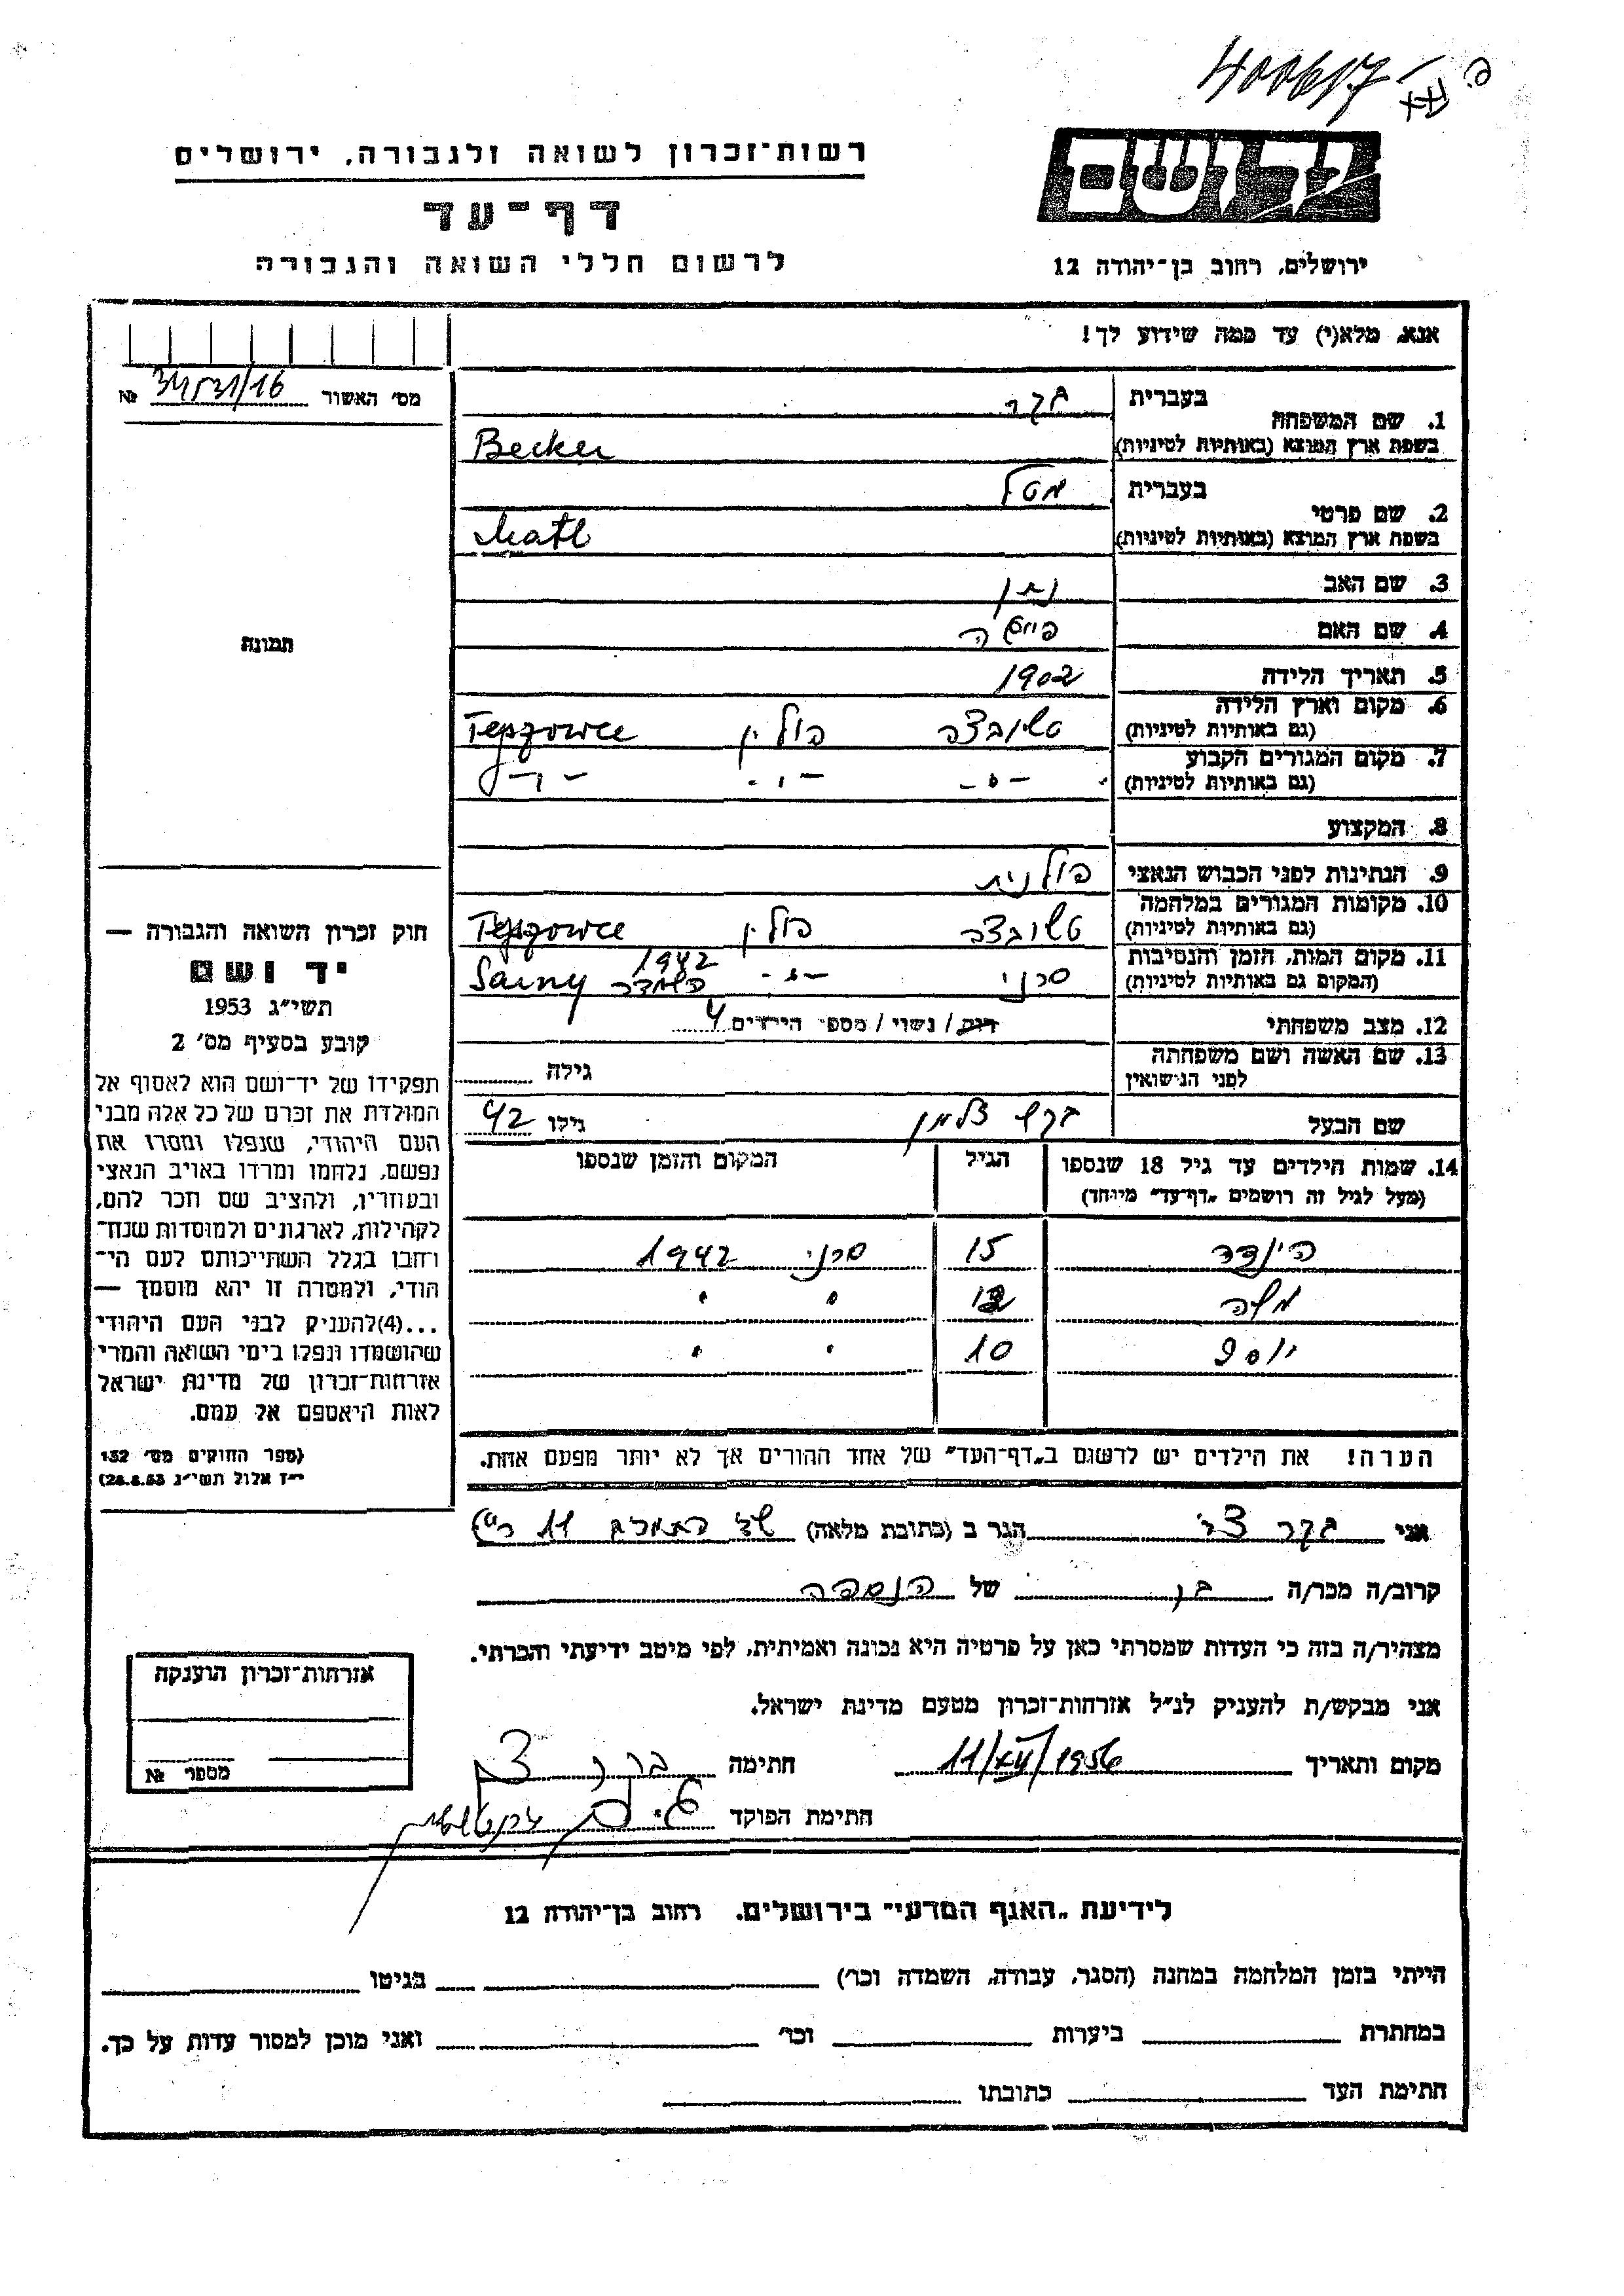 400617
רשות־זכרון לשואה ולגבורה, ירושלים
יד ושם
דף־עד
לרשום חללי השואה והגבורה
ירושלים, רחוב בן־יהודה 12
אנא, מלא(י) עד כמה שידוע לך!
מס׳ האשור 34531/16 №
1. שם המשפחה
בעברית בקר
בשפת ארץ המוצא (באותיות לטיניות) Becker
2. שם פרטי
בעברית מטל
בשפת ארץ המוצא (באותיות לטיניות) Matl
3. שם האב נתן
4. שם האם
5. תאריך הלידה 1902
6. מקום וארץ הלידה (גם באותיות לטיניות) פולין
7. מקום המגורים הקבוע (גם באותיות לטיניות) -"- -"- -"-
8. המקצוע
9. הנתינות לפני הכבוש הנאצי פולנית
10. מקומות המגורים במלחמה (גם באותיות לטיניות) פולין
11. מקום המות, הזמן והנסיבות (המקום גם באותיות לטיניות) סרני -"- 1942 Sarny
12. מצב משפחתי רוק / נשוי / מספר הילדים 4
13. שם האשה ושם משפחתה לפני הנישואין גילה
שם הבעל בקר זלמן גילו 42
תמונה
14. שמות הילדים עד גיל 18 שנספו (מעל לגיל זה רושמים „דף־עד” מיוחד) הגיל המקום והזמן שנספו
הינדה 15 סרני 1942
" "
יוסף 10 " "
הערה! את הילדים יש לרשום ב„דף־העד” של אחד ההורים אך לא יותר מפעם אחת.
חוק זכרון השואה והגבורה —
יד ושם
תשי״ג 1953
קובע בסעיף מס׳ 2
תפקידו של יד־ושם הוא לאסוף אל
המולדת את זכרם של כל אלה מבני
העם היהודי, שנפלו ומסרו את
נפשם, נלחמו ומרדו באויב הנאצי
ובעוזריו, ולהציב שם וזכר להם,
לקהילות, לארגונים ולמוסדות שנח־
רחבו בגלל השתייכותם לעם הי־
הודי, ולמטרה זו יהא מוסמך —
...(4)להעניק לבני העם היהודי
שהושמדו ונפלו בימי השואה והמרי
אזרחות־זכרון של מדינת ישראל
לאות היאספם אל עמם.
(ספר החוקים מס׳ 132
י״ז אלול תשי״ג 28.8.53)
אני בקר צבי הגר ב (כתובת מלאה) 11
קרוב/ה מכר/ה בן של הנספה
מצהיר/ה בזה כי העדות שמסרתי כאן על פרטיה היא נכונה ואמיתית, לפי מיטב ידיעתי והכרתי.
אני מבקש/ת להעניק לנ״ל אזרחות־זכרון מטעם מדינת ישראל.
מקום ותאריך 11/XII/1956 חתימה
חתימת הפוקד
אזרחות־זכרון הוענקה
מספר №
לידיעת „האגף המדעי” בירושלים, רחוב בן־יהודה 12
הייתי בזמן המלחמה במחנה (הסגר, עבודה, השמדה וכו׳) בגיטו
במחתרת ביערות וכו׳ ואני מוכן למסור עדות על כך.
חתימת העד כתובתו